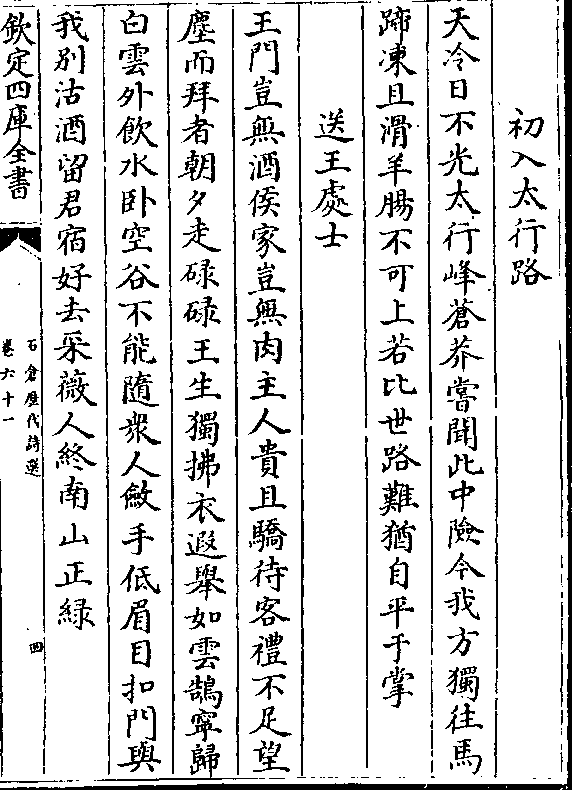 初入太行路
天冷日不光太行峰蒼莽嘗聞此中險今我方獨往馬
蹄凍且滑羊腸不可上若比世路難猶自平于掌
送王處士
王門豈無酒侯家豈無肉主人貴且驕待客禮不足望
塵而拜者朝夕走碌碌王生獨拂衣遐舉如雲鵠寧歸
白雲外飲水卧空谷不能隨衆人斂手低眉目扣門與
我别沽酒留君宿好去采薇人終南山正緑
欽定四庫全書
石倉歷代詩選
卷六十一
四